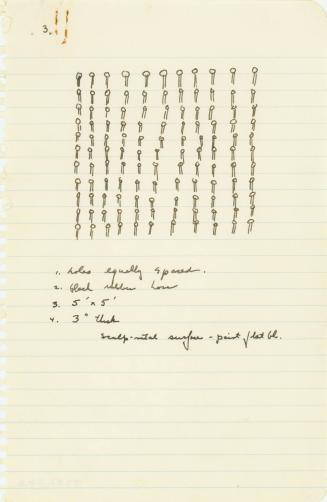 3.
1. holes equally spaced.
2. black rubber hose
3. 5' x 5'
4. 3" thick
sculp-metal surface - paint flat bl.